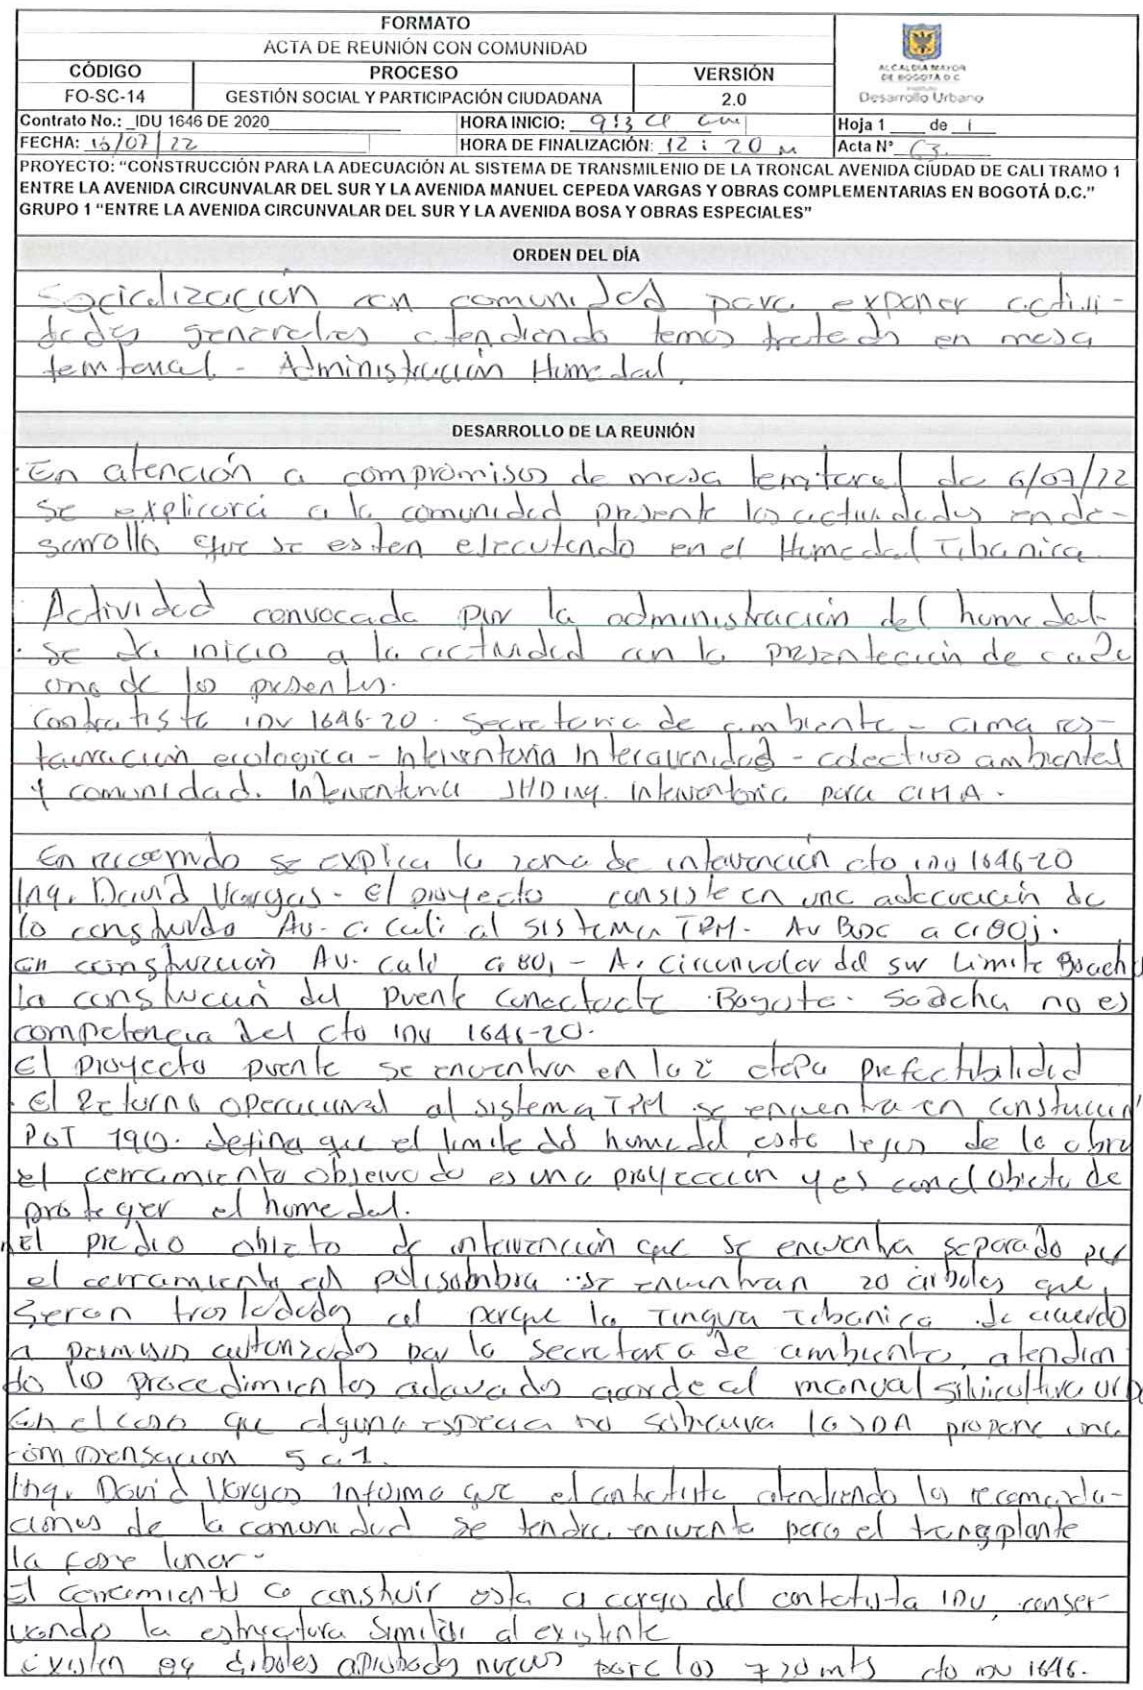 FORMATO
ACTA DE REUNIÓN CON COMUNIDAD
CÓDIGO PROCESO VERSIÓN
FO-SC-14 GESTIÓN SOCIAL Y PARTICIPACIÓN CIUDADANA 2.0
ALCALDÍA MAYOR
DE BOGOTÁ D.C.
Instituto
Desarrollo Urbano
Contrato No.: _IDU 1646 DE 2020 HORA INICIO: Hoja 1 de 1
FECHA: 16/07/22 HORA DE FINALIZACIÓN: 12:20 m Acta N°
PROYECTO: “CONSTRUCCIÓN PARA LA ADECUACIÓN AL SISTEMA DE TRANSMILENIO DE LA TRONCAL AVENIDA CIUDAD DE CALI TRAMO 1
ENTRE LA AVENIDA CIRCUNVALAR DEL SUR Y LA AVENIDA MANUEL CEPEDA VARGAS Y OBRAS COMPLEMENTARIAS EN BOGOTÁ D.C.”
GRUPO 1 “ENTRE LA AVENIDA CIRCUNVALAR DEL SUR Y LA AVENIDA BOSA Y OBRAS ESPECIALES”
ORDEN DEL DÍA
Socialización con comunidad para exponer activi-
dades generales atendiendo temas tratados en mesa
territorial - Administración Humedal,
DESARROLLO DE LA REUNIÓN
En atención a compromisos de mesa territorial de 6/07/22
se explicará a la comunidad presente las actividades en de-
sarrollo que se esten ejecutando en el Humedal Tibanica
Actividad convocada por la administración del humedal
. se da inicio a la actividad con la presentación de cada
uno de los presentes.
Contratista IDU 1646-20. Secretaria de ambiente - cima res-
tauración ecologica - Interventoria Interavenidas - colectivo ambiental
y comunidad. Interventoria JHD ing. Interventoria para CIMA.
En recorrido se explica la zona de intervención cto IDU 1646-20
Ing. David Vargas - El proyecto consiste en una adecuación de
lo construido Av. C. Cali al sistema TPM. Av Bosa a
En construcción Av. Cali - A. Circunvalar del sur Limite
la construcción del puente Bogota - Soacha no es
competencia del cto IDU 1646-20.
El proyecto puente se encuentra en la 2 etapa prefactibilidad
. El Retorno operacional al sistema TPM se encuentra en construcción
POT 190. define que el limite del humedal esta lejos de la obra
el cerramiento observado es una proyección y es con el objeto de
proteger el humedal.
El predio objeto de intervención que se encuentra separado por
el cerramiento en polisombra se encuentran 20 árboles que
seran trasladados al parque la Tingua Tibanica de acuerdo
a permisos autorizados por la Secretaria de ambiente, atendien
do los procedimientos adecuados acorde al manual silvicultura
En el caso que alguna especie no sobreviva la SDA propone una
compensación 5 a 1.
Ing. David Vargas informa que el contratista atendiendo las recomenda-
ciones de la comunidad se tendra en cuenta para el transplante
la fase lunar -
El cerramiento a construir esta a cargo del contratista IDU, conser-
vando la estructura similar al existente
existen 94 árboles aprobados nuevos para los 720 mts cto IDU 1646.